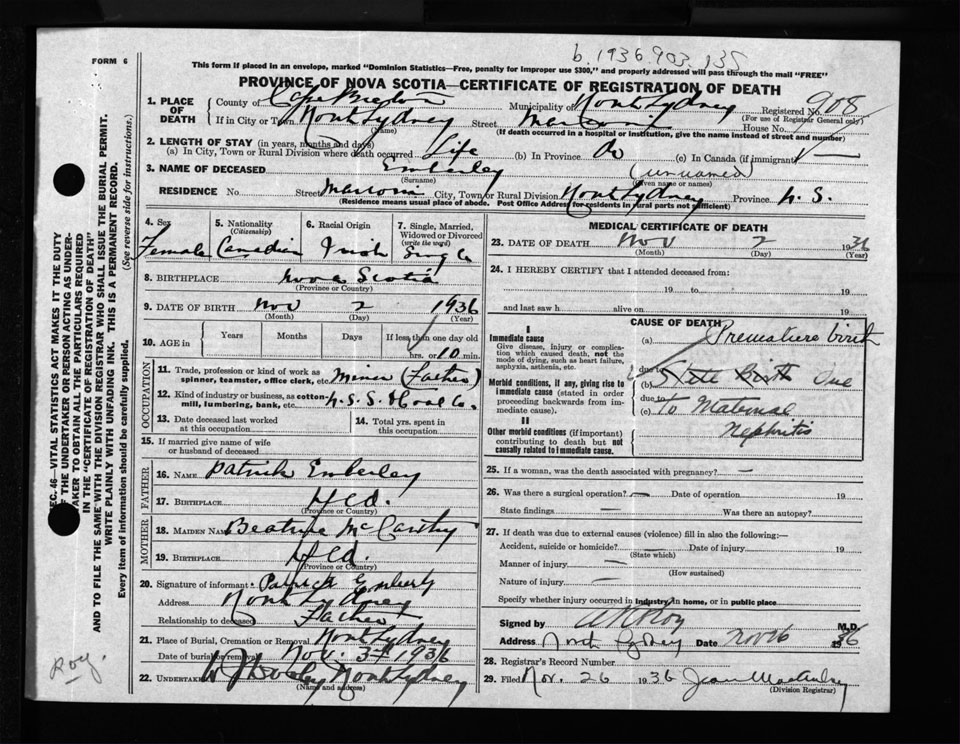 b. 1936.903.135
FORM 6
This form if placed in an envelope, marked "Dominion Statistics—Free, penalty for improper use $300," and properly addressed will pass through the mail "FREE"
PROVINCE OF NOVA SCOTIA—CERTIFICATE OF REGISTRATION OF DEATH
1. PLACE OF DEATH
County of Cape Breton Municipality of North Sydney Registered No. 908
(For use of Registrar General only)
If in City or Town North Sydney Street Marconi House No.
(Name) (If death occurred in a hospital or institution, give the name instead of street and number)
2. LENGTH OF STAY (in years, months and days)
(a) In City, Town or Rural Division where death occurred Life (b) In Province Do (c) In Canada (if immigrant)
3. NAME OF DECEASED Emberley (unnamed)
(Surname) (Given name or names)
RESIDENCE No. Street Marconi City, Town or Rural Division North Sydney Province N. S.
(Residence means usual place of abode. Post Office Address for residents in rural parts not sufficient)
4. Sex Female
5. Nationality (Citizenship) Canadian
6. Racial Origin Irish
7. Single, Married, Widowed or Divorced (write the word) Single
8. BIRTHPLACE Nova Scotia
(Province or Country)
9. DATE OF BIRTH Nov 2 1936
(Month) (Day) (Year)
10. AGE in Years Months Days If less than one day old
hrs. or 10 min.
OCCUPATION
11. Trade, profession or kind of work as spinner, teamster, office clerk, etc. Miner (Father)
12. Kind of industry or business, as cotton-mill, lumbering, bank, etc. N.S.S. & Coal Co.
13. Date deceased last worked at this occupation
14. Total yrs. spent in this occupation
15. If married give name of wife or husband of deceased
FATHER
16. NAME Patrick Emberley
17. BIRTHPLACE Nfld.
(Province or Country)
MOTHER
18. MAIDEN NAME Beatrice McCarthy
19. BIRTHPLACE Nfld.
(Province or Country)
20. Signature of informant Patrick Emberly
Address North Sydney
Relationship to deceased Father
21. Place of Burial, Cremation or Removal North Sydney
Date of burial or removal Nov. 3rd 1936
22. UNDERTAKER North Sydney
(Name and address)
MEDICAL CERTIFICATE OF DEATH
23. DATE OF DEATH Nov 2 1936
(Month) (Day) (Year)
24. I HEREBY CERTIFY that I attended deceased from:
19 to 19
and last saw h alive on 19
CAUSE OF DEATH
I
Immediate cause
Give disease, injury or complication which caused death, not the mode of dying, such as heart failure, asphyxia, asthenia, etc.
(a) Premature birth
due to
Morbid conditions, if any, giving rise to immediate cause (stated in order proceeding backwards from immediate cause).
(b) Birth Due
due to
(c) to Maternal
Nephritis
II
Other morbid conditions (if important) contributing to death but not causally related to immediate cause.
25. If a woman, was the death associated with pregnancy? —
26. Was there a surgical operation? — Date of operation 19
State findings — Was there an autopsy?
27. If death was due to external causes (violence) fill in also the following:—
Accident, suicide or homicide? — Date of injury 19
(State which)
Manner of injury —
(How sustained)
Nature of injury —
Specify whether injury occurred in industry, in home, or in public place
Signed by M.D.
Address North Sydney Date Nov 6 1936
28. Registrar's Record Number
29. Filed Nov. 26 1936 Jean
(Division Registrar)
SEC. 46—VITAL STATISTICS ACT MAKES IT THE DUTY OF THE UNDERTAKER OR PERSON ACTING AS UNDERTAKER TO OBTAIN ALL THE PARTICULARS REQUIRED IN THE "CERTIFICATE OF REGISTRATION OF DEATH" AND TO FILE THE SAME WITH THE DIVISION REGISTRAR WHO SHALL ISSUE THE BURIAL PERMIT.
WRITE PLAINLY WITH UNFADING INK. THIS IS A PERMANENT RECORD.
Every item of information should be carefully supplied. (See reverse side for instructions.)